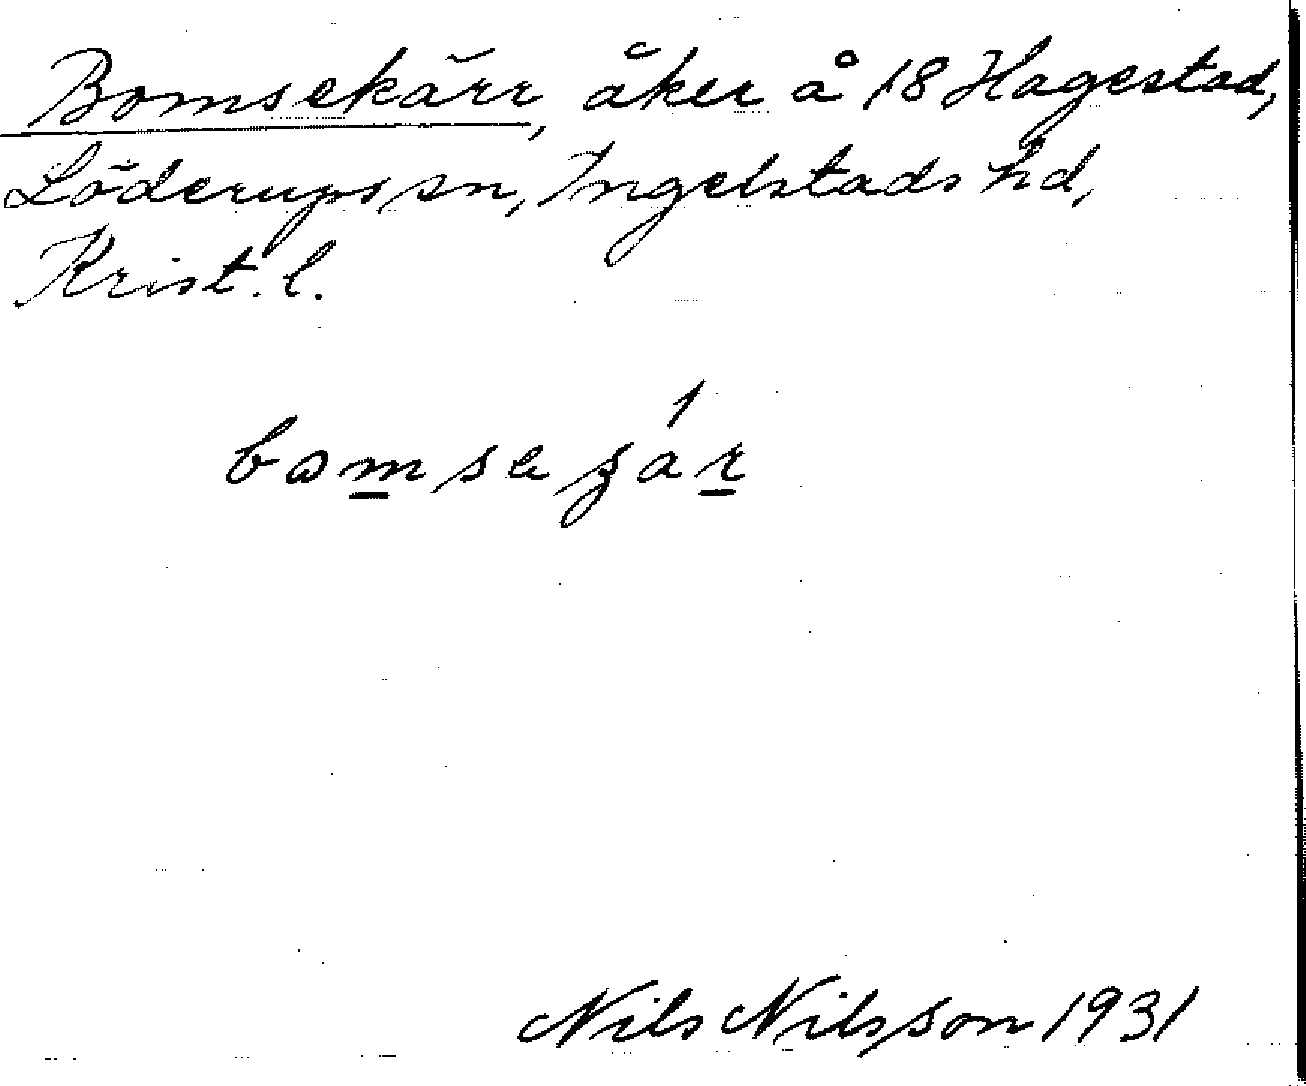 Bomsekärr, åker å 18 Hagestad,
Löderups sn, Ingelstads hd,
Krist. l.
Nils Nilsson 1931